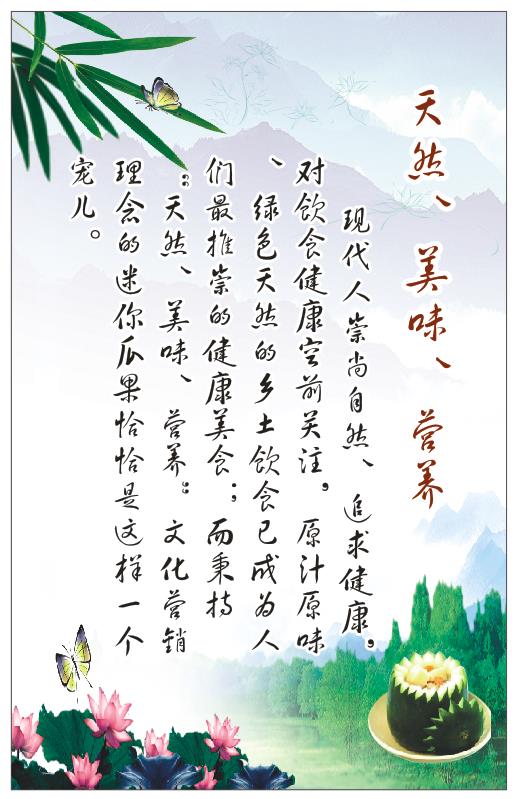 天然、美味、营养
现代人崇尚自然、追求健康，
对饮食健康空前关注，原汁原味
、绿色天然的乡土饮食已成为人
们最推崇的健康美食；而秉持
“天然、美味、营养”文化营销
理念的迷你瓜果恰恰是这样一个
宠儿。